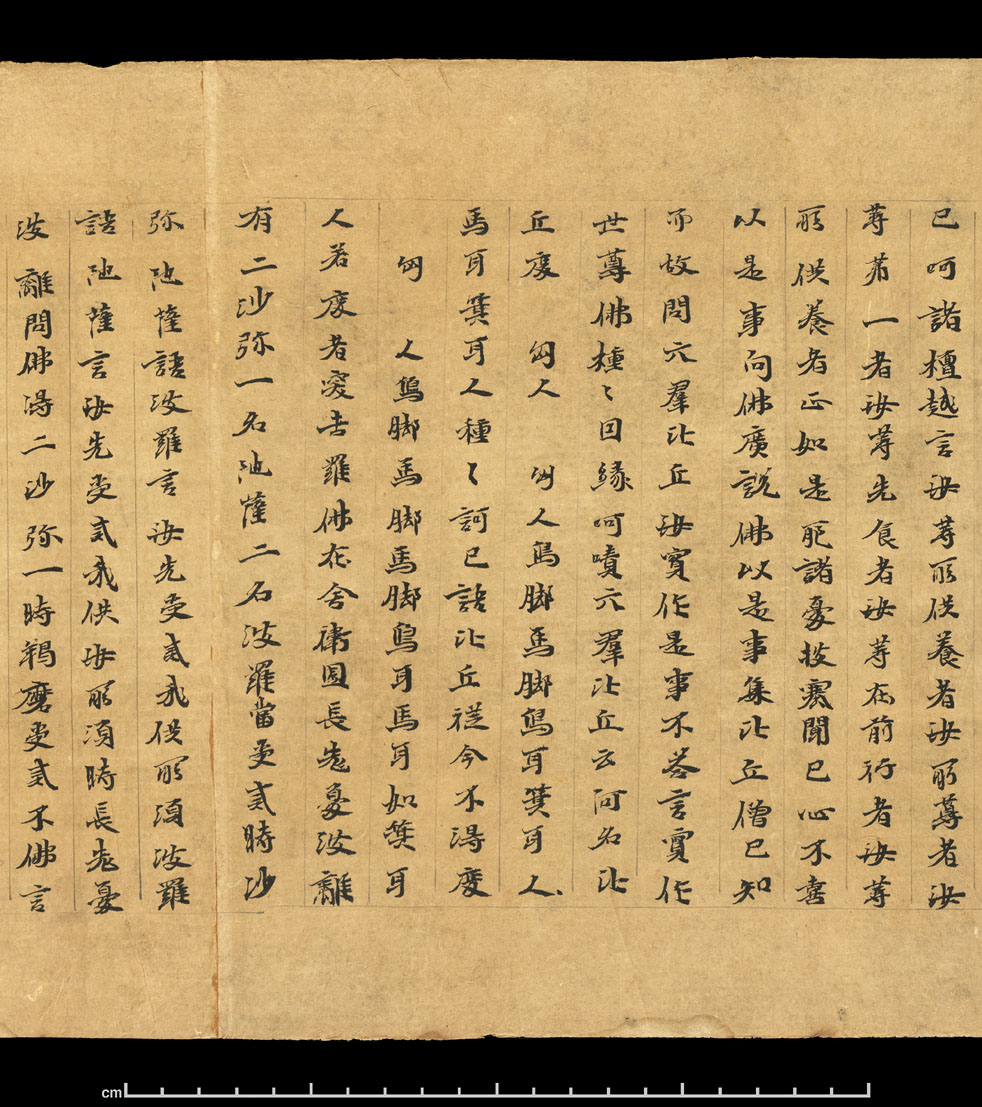 已呵諸檀越言汝䓁所供養者汝所尊者汝
䓁苐一者汝䓁先食者汝䓁在前行者汝䓁
所供養者正如是耶諸憂扠塞聞已心不喜
以是事向佛廣説佛以是事集比丘僧已知
而故問六羣比丘汝實作是事不荅言實作
世尊佛種〻因緣呵嘖六羣比丘云何名比
丘度 匈人 匈人鳥脚馬脚鳥耳箕耳人
馬耳箕耳人種〻訶已語比丘從今不得度
匈 人鳥脚馬脚馬脚鳥耳馬耳如箕耳
人若度者突吉羅佛在舍衛國長老憂波離
有二沙弥一名池薩二名波羅當受戒時沙
弥池薩語波羅言汝先受戒我供所湏波羅
語池薩言汝先受戒我供汝所湏時長老憂
波離問佛得二沙弥一時羯磨受戒不佛言